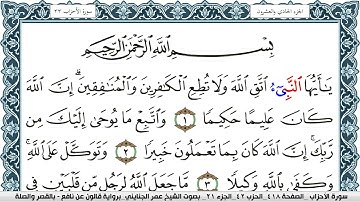 سورة الأحزاب ٣٣
الجزء الحادي والعشرون
بِسْمِ اللَّهِ الرَّحْمَٰنِ الرَّحِيمِ
يَٰأَيُّهَا النَّبِيءُ اتَّقِ اللَّهَ وَلَا تُطِعِ الْكَٰفِرِينَ وَالْمُنَٰفِقِينَ إِنَّ اللَّهَ
كَانَ عَلِيمًا حَكِيمًا ١ وَاتَّبِعْ مَا يُوحَىٰ إِلَيْكَ مِن
رَّبِّكَ إِنَّ اللَّهَ كَانَ بِمَا تَعْمَلُونَ خَبِيرًا ٢ وَتَوَكَّلْ عَلَى اللَّهِ
وَكَفَىٰ بِاللَّهِ وَكِيلًا ٣ مَّا جَعَلَ اللَّهُ لِرَجُلٍ مِّن قَلْبَيْنِ فِي
سورة الأحزاب - الصفحة ٤١٨ - الحزب ٤٢ - الجزء ٢١ بصوت الشيخ عمر الجنايني - برواية قالون عن نافع - بالقصر والصلة